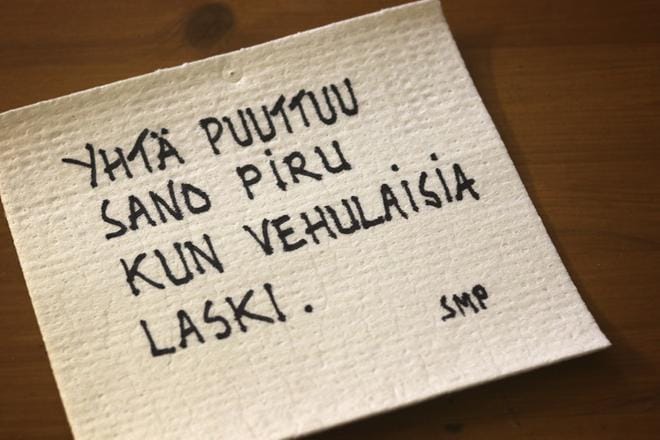 YHTÄ PUUTTUU
SANO PiRU
KUN VEHULAiSiA
LASKI.
SMP